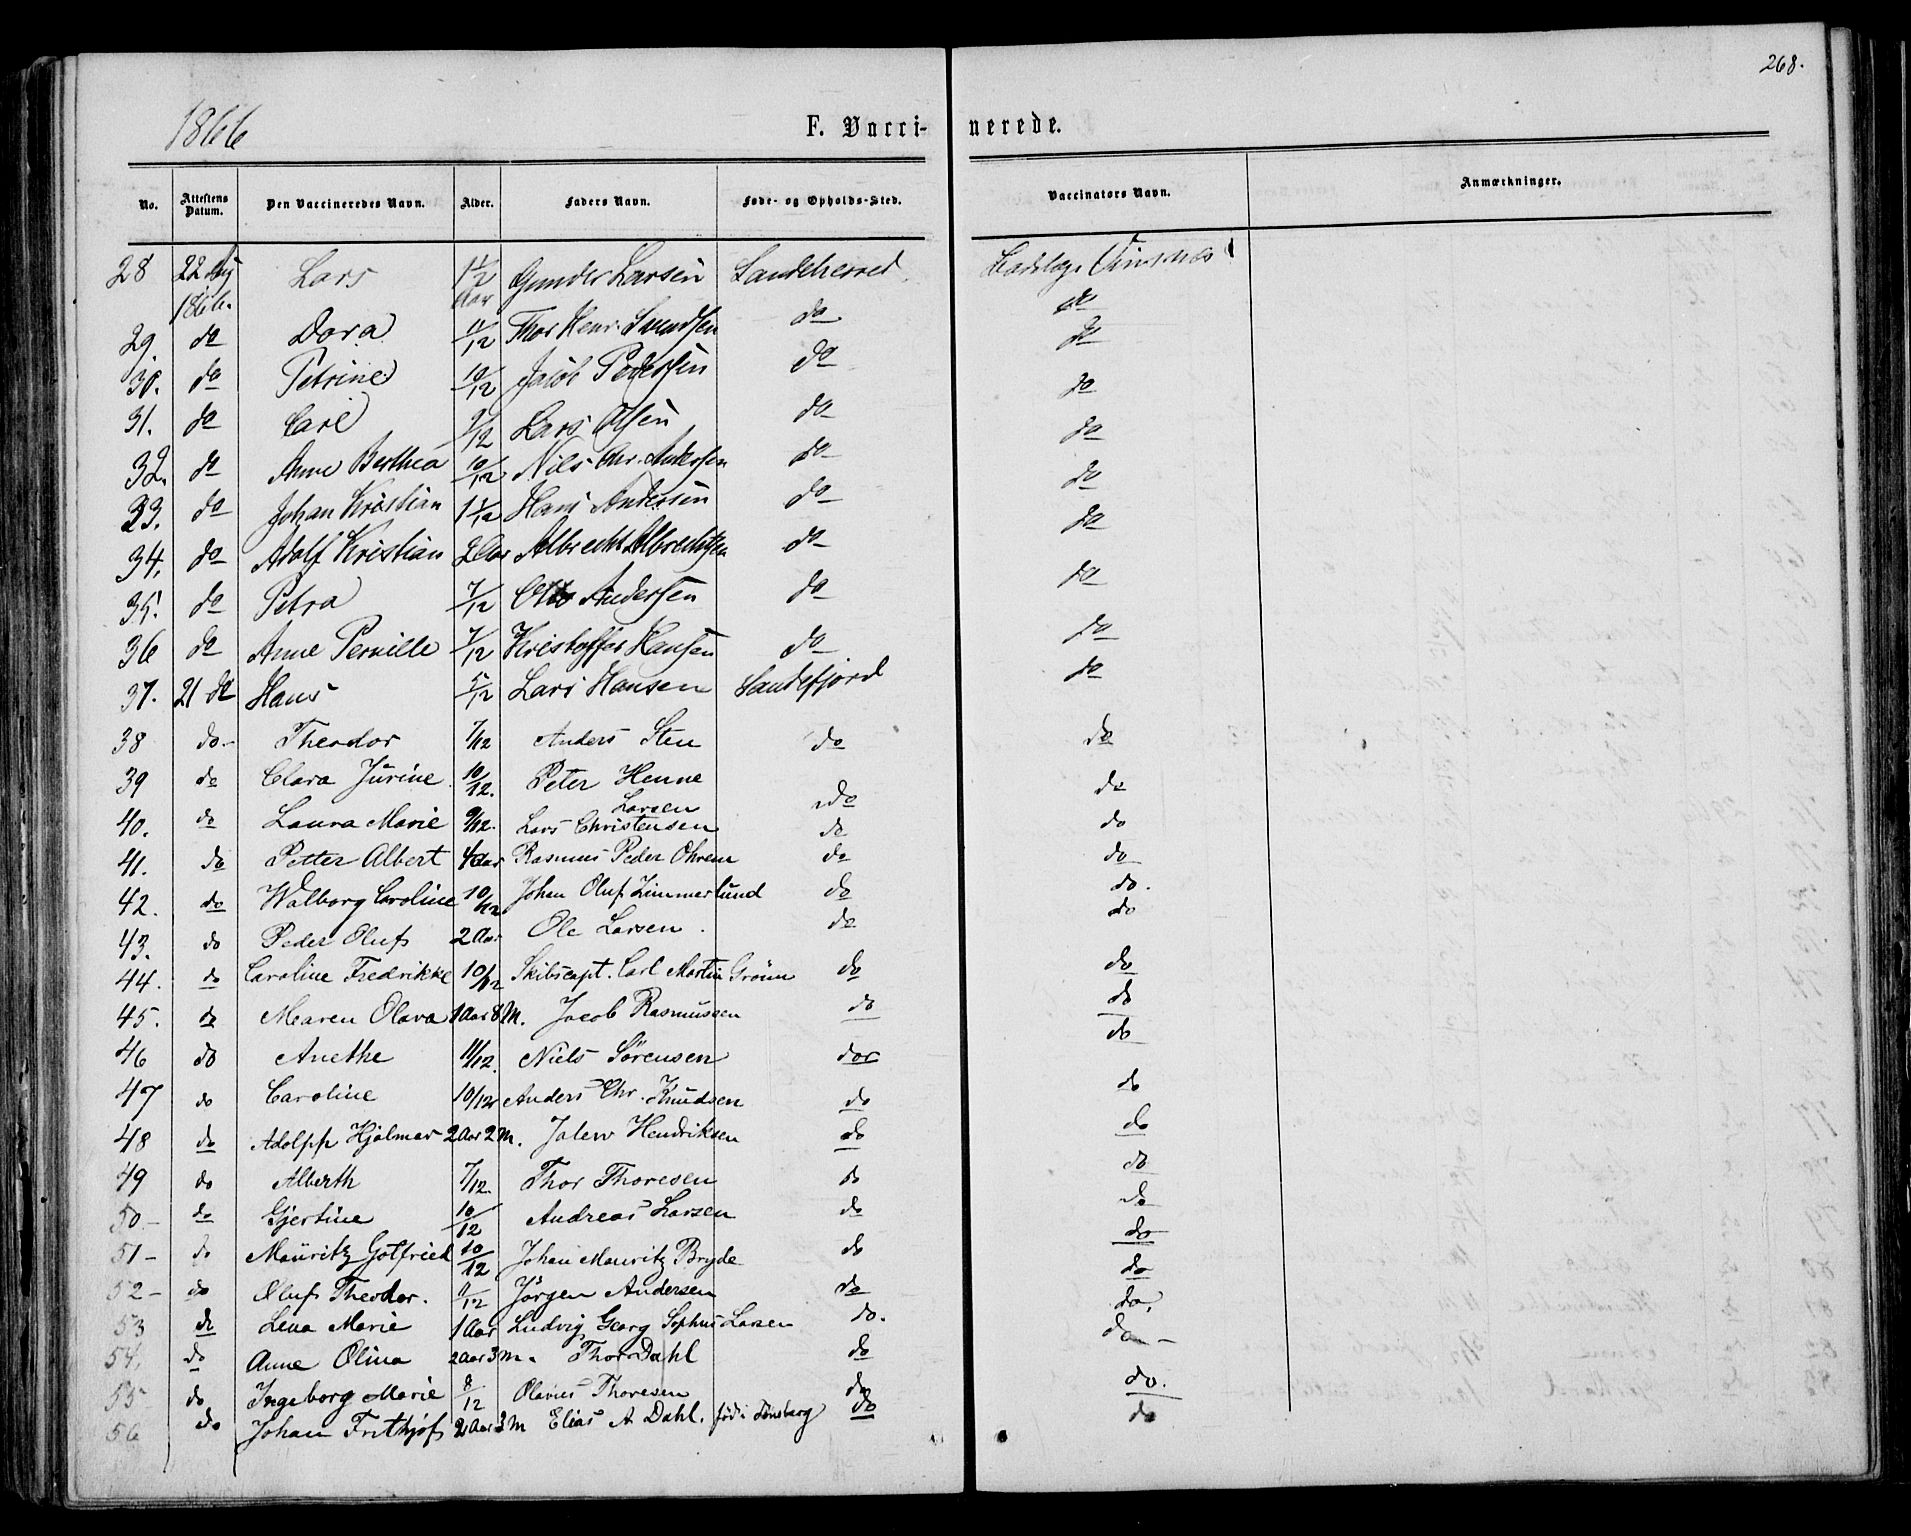 268.
1866 F. Vacci- nerede.
No. Attestens Datum. Den Vaccineredes Navn. Alder. Faders Navn. Føde- og Opholds-Sted. Vaccinators Navn. Anmærkninger.
28 22 Aug 1866. Lars 1 1/2 Aar Gunder Larsen Sandeherred
29. do Dora 11/12 Thor Henr. do do
30. do Petrine 10/12 Jacob Pedersen do do
31. do Carl 9/12 Lars Olsen do do
32. do Anne Berthea 10/12 Nils Chr. Andersen do do
33. do Johan Kristian 1 1/12 Hans Andersen do do
34. do Adolf Kristian 2 Aar Albrecht Albrechtsen do do
35. do Petra 7/12 Otto Andersen do do
36 do Anne Pernille 7/12 Kristoffer Hansen do do
37. 21 do Hans 5/12 Lars Hansen Sandefjord do
38 do- Theodor 7/12 Anders Sten do do
39 do Clara Jürine 10/12. Peter Henne Larsen do do
40. do Laura Marie 9/12. Lars Christensen do do
41. do Petter Albert 4 Aar Rasmus Peder Ohren do do
42. do Walborg Caroline 10/12 Johan Oluf Zimmerlund do do.
43. do Peder Oluf 2 Aar Ole Larsen. do do
44. do Caroline Fredrikke 10/12 Skibscapt. Carl Martin Grönn do do
45. do Maren Olava 1 Aar 8 M. Jacob Rasmussen do do
46 do Anethe 11/12. Niels Sörensen do do
47 do Caroline 10/12 Anders Chr. Knudsen do do
48 do Adolph Hjalmar 2 Aar 2 M. Hendriksen do do
49 do Alberth 7/12. Thor Thoresen do do
50- do Gjertine 10/12 Andreas Larsen do do
51- do Mauritz Gotfried 10/12 Johan Mauritz Bryde do do
52- do Oluf Theodor. 11/12 Jörgen Andersen do do
53 do Lena Marie 1 Aar Ludvig Georg Sophus Larsen do. do.
54. do Anne Olina 2 Aar 3 M. Thor Dahl do do-
55 do Ingeborg Marie 8/12 Olavus Thoresen do do.
56 do Johan Frithjof 2 Aar 3 M Elias A Dahl. född i Tönsberg do do